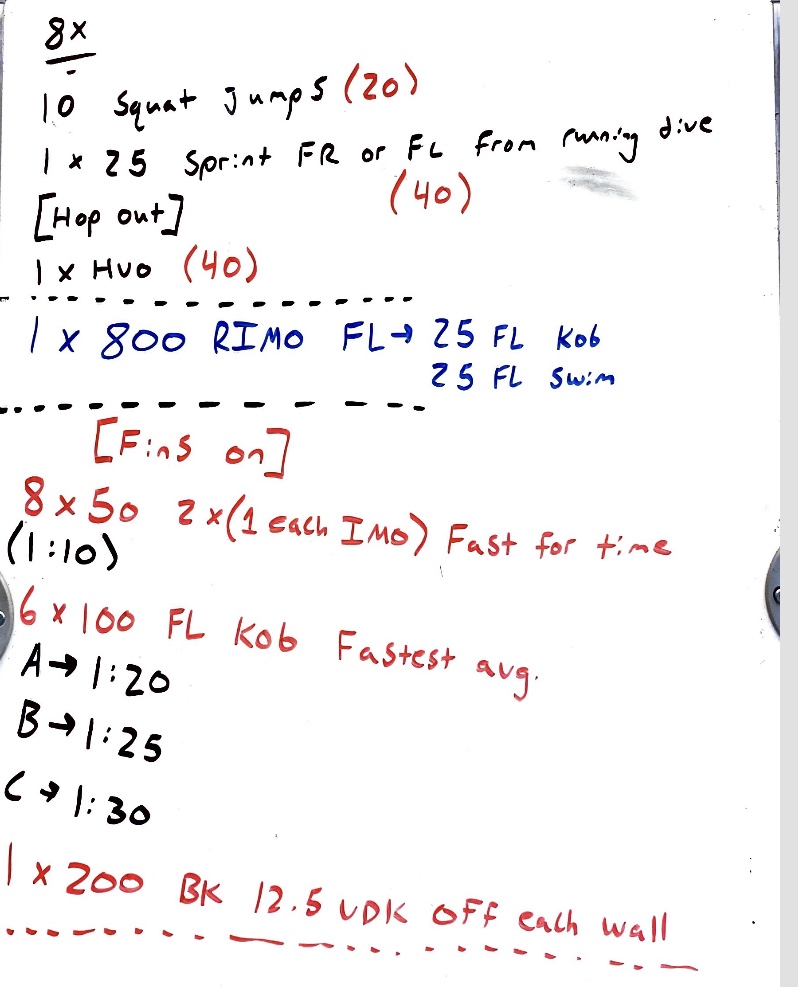 8x
10 Squat Jumps (20)
1 x 25 Sprint FR or FL from running dive
(40)
[Hop out]
1 x HVO (40)
1 x 800 RIMO FL→ 25 FL Kob
25 FL Swim
[Fins on]
8 x 50 2 x (1 each IMO) Fast for time
(1:10)
6 x 100 FL Kob Fastest avg.
A→ 1:20
B→ 1:25
C→ 1:30
1 x 200 BK 12.5 UDK off each wall